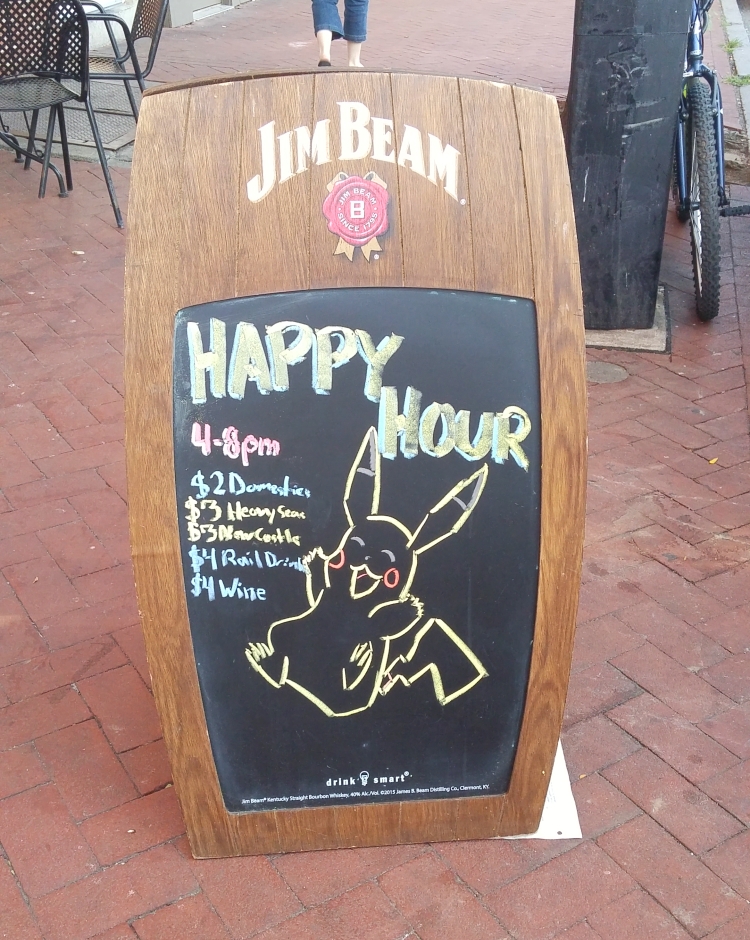 JIM BEAM
JIM BEAM
B
SINCE 1795
HAPPY
HOUR
4-8pm
$2 Domestics
$3 Heavy Seas
$3 NewCastle
$4 Rail Drinks
$4 Wine
drink smart®
Jim Beam® Kentucky Straight Bourbon Whiskey, 40% Alc./Vol. ©2015 James B. Beam Distilling Co., Clermont, KY.